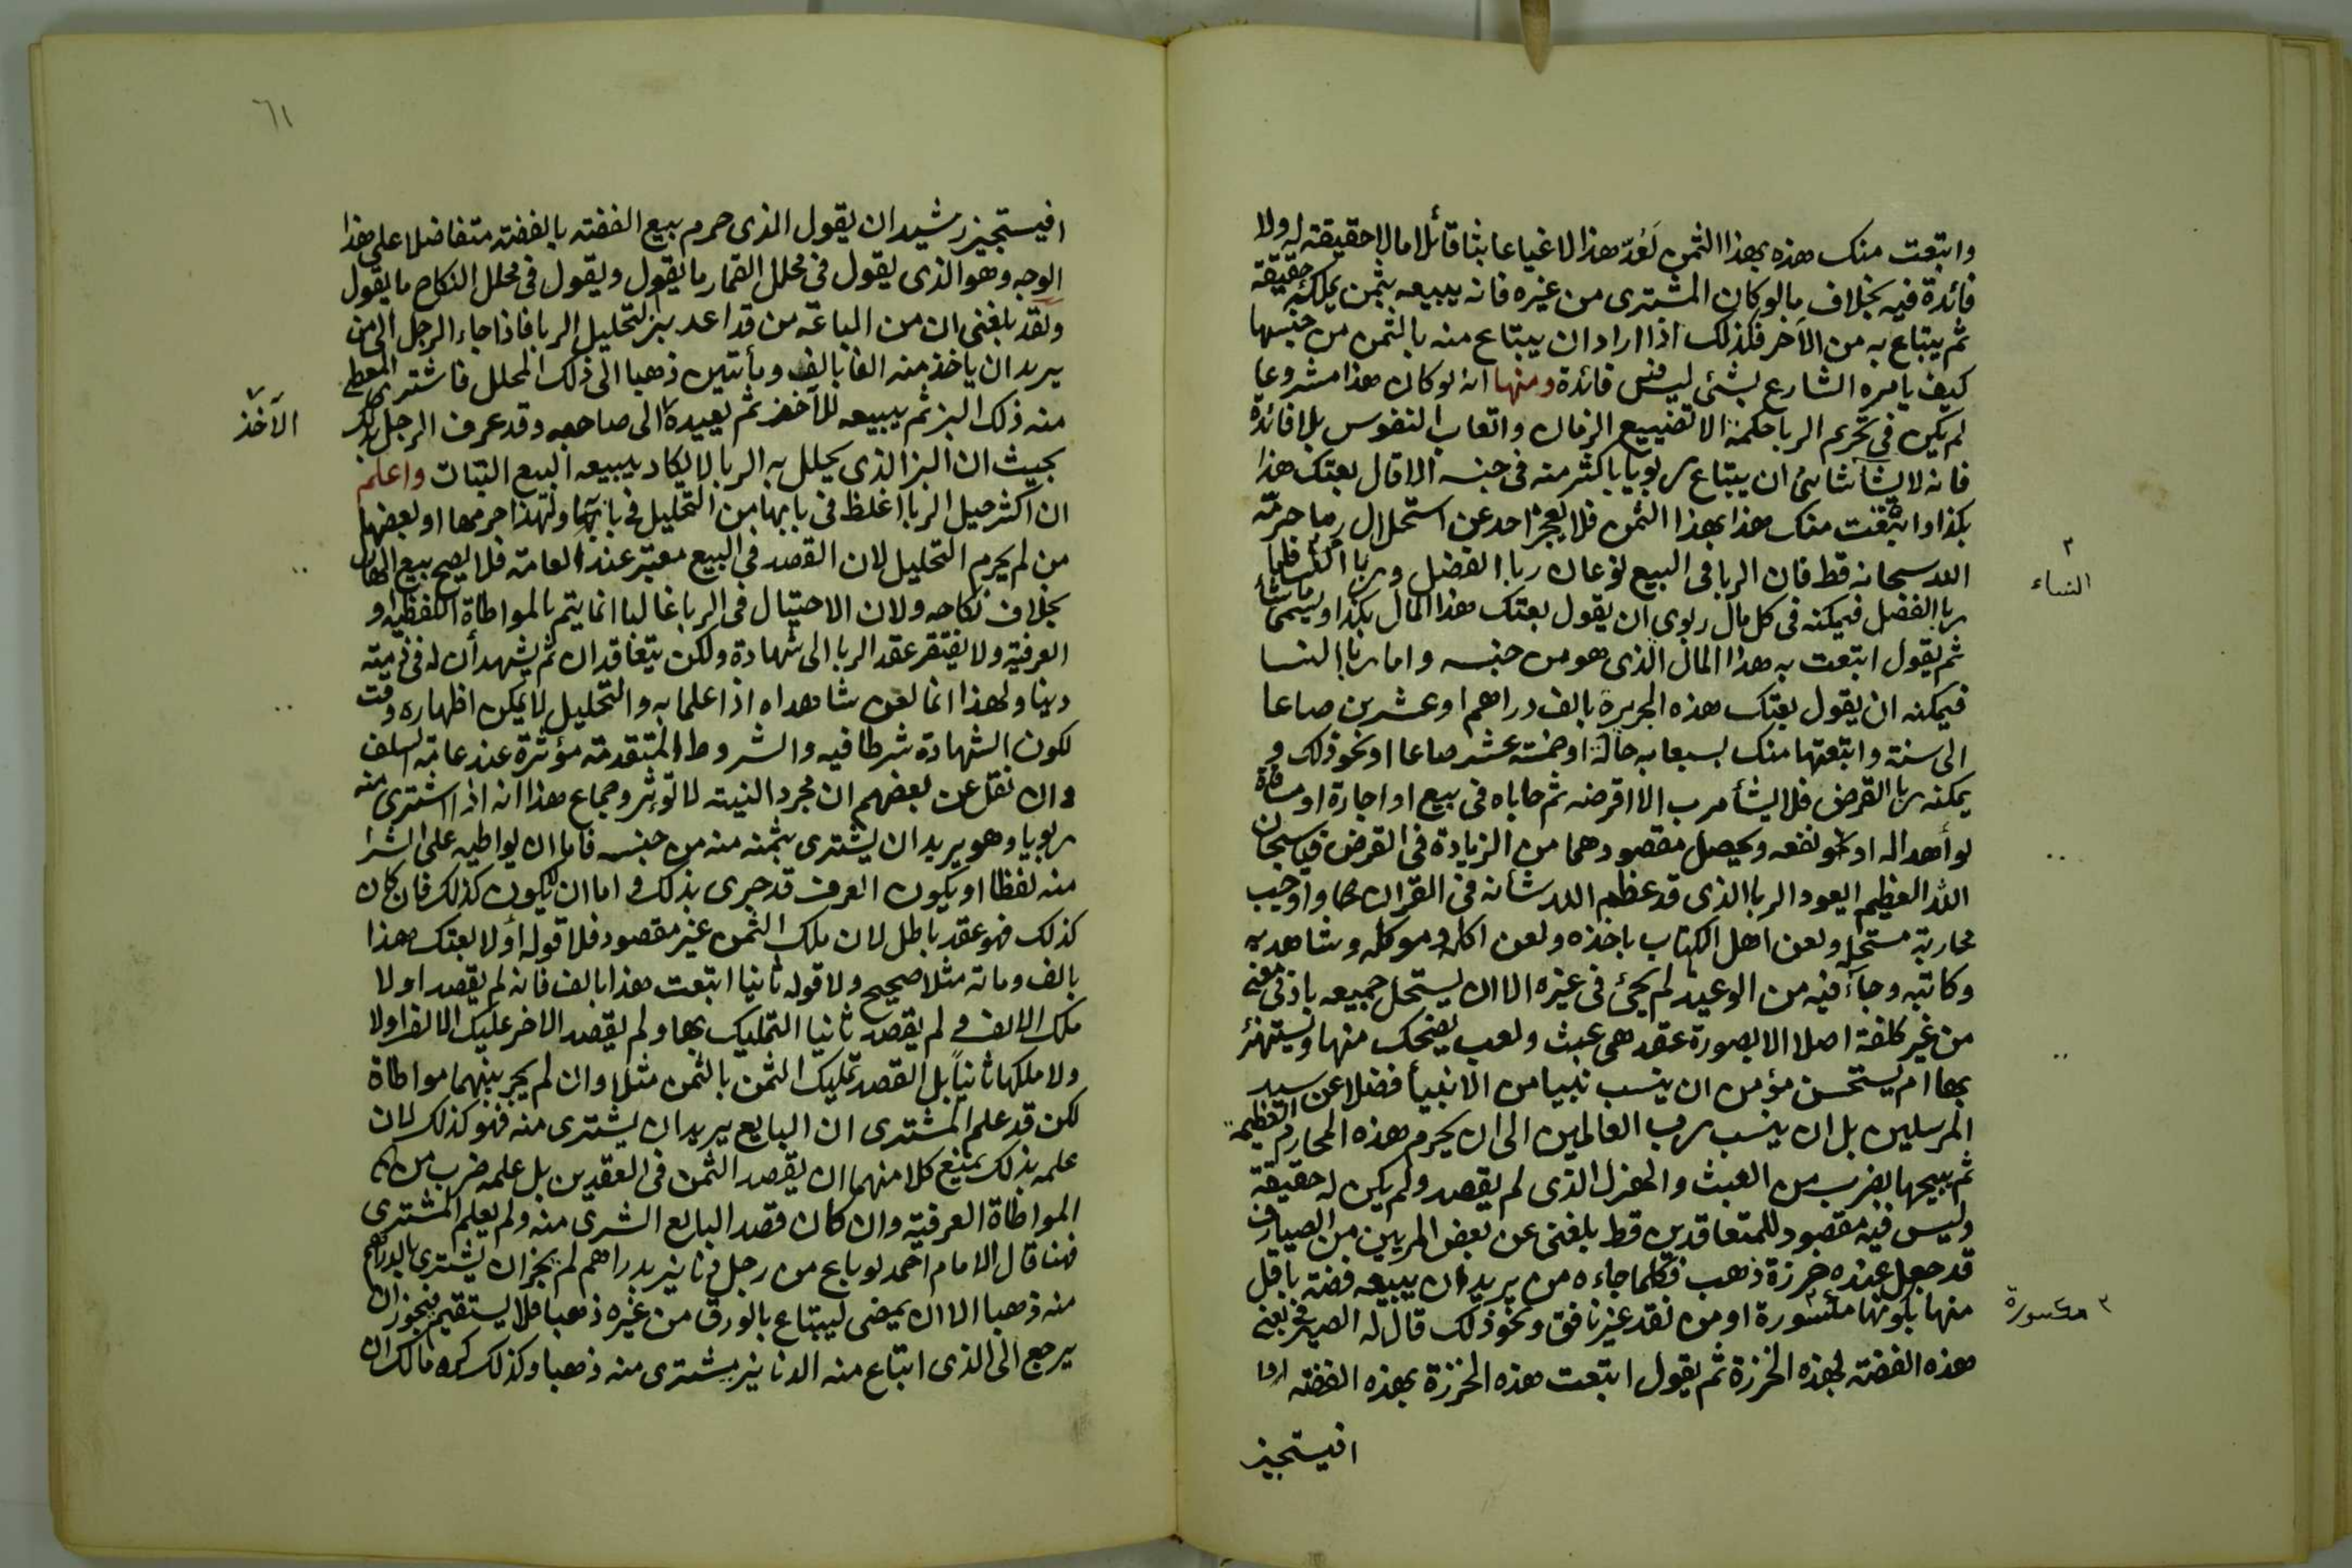 وابتعت منك هذه بهذا الثمن لَعُدّ هذا لاغيا عابثا قائلا مالا حقيقة له ولا
فائدة فيه بخلاف مالو كان المشترى من غيره فانه يبيعه بثمن يملكه حقيقة
ثم يبتاع به من الآخر فكذلك اذا اراد ان يبتاع منه بالثمن من جنسها
كيف يامره الشارع بشئ ليس فيه فائدة ومنها انه لو كان هذا مشروعا
لم يكن فى تحريم الربا حكمة الا تضييع الزمان واتعاب النفوس بلا فائدة
فانه لا يشأ شائ ان يبتاع ربويا باكثر منه فى جنسه الا قال بعتك هذا
بكذا وابتعت منك هذا بهذا الثمن فلا يعجز احد عن استحلال ربا حرمه
الله سبحانه قط فان الربا فى البيع نوعان ربا الفضل وربا النساء فاما
ربا الفضل فيمكنه فى كل مال ربوى ان يقول بعتك هذا المال بكذا ويسمى ما شأ
ثم يقول ابتعت به هذا المال الذى هو من جنسه واما ربا النسا
فيمكنه ان يقول بعتك هذه الحريرة بالف دراهم او عشرين صاعا
الى سنة وابتعتها منك بسبعمايه حالة او خمسة عشر صاعا او نحو ذلك و
يمكنه ربا القرض فلا يشأ مرب الا اقرضه ثم حاباه فى بيع او اجارة او مساقاة
او أهدا له او نفعه ويحصل مقصودهما من الزيادة فى القرض فيا سبحان
الله العظيم ايعود الربا الذى قد عظم الله شأنه فى القران واوجب
محاربة مستحله ولعن اهل الكتاب باخذه ولعن اكله وموكله وشاهديه
وكاتبه وجآء فيه من الوعيد لم يجئ فى غيره الا ان يستحل جميعه بادنى سعى
من غير كلفة اصلا الا بصورة عقد هى عبث ولعب يضحك منها ويستهزئ
بها ام يستحسن مؤمن ان ينسب نبيا من الانبيأ فضلا عن سيد
المرسلين بل ان ينسب رب العالمين الى ان يحرم هذه المحارم العظيمة
ثم يبيحها بضرب من العبث والهزل الذى لم يقصد ولم يكن له حقيقة
وليس فيه مقصود للمتعاقدين قط بلغنى عن بعض المربين من الصيارف
قد جعل عنده خرزة ذهب فكلما جاءه من يريد ان يبيعه فضة باقل
منها لكونها مكسورة او من نقد غير نافق ونحو ذلك قال له الصيرفى بعنى
هذه الفضة بهذه الخرزة ثم يقول ابتعت هذه الخرزة بهذه الفضة
افيستجيز
٣
النساء
٣ مكسورة
٦١
افيستجيز رشيد ان يقول الذى حرم بيع الفضة بالفضة متفاضلا على هذا
الوجه وهو الذى يقول فى محلل القمار ما يقول ويقول فى محلل النكاح ما يقول
ولقد بلغنى ان من الباعة من قد اعد بزا لتحليل الربا فاذا جاء الرجل الى من
يريد ان ياخذ منه الفا بالف ومأتين ذهبا الى ذلك المحلل فاشترى المعطى
منه ذلك البز ثم يبيعه للآخذ ثم يعيده الى صاحبه وقد عرف الرجل بذلك
بحيث ان البز الذى يحلل به الربا لا يكاد يبيعه البيع البتات واعلم
ان اكثر حيل الربا اغلظ فى بابها من التحليل فى بابه ولهذا حرمها او بعضها
من لم يحرم التحليل لان القصد فى البيع معتبر عند العامة فلا يصح بيع الهازل
بخلاف نكاحه ولان الاحتيال فى الربا غالبا انما يتم بالمواطاة اللفظيه او
العرفية ولا يفتقر عقد الربا الى شهادة ولكن يتعاقدان ثم يشهد أن له فى ذمته
دينا ولهذا انما لعن شاهداه اذا علما به والتحليل لا يمكن اظهاره وقت
لكون الشهادة شرطا فيه والشروط المتقدمة مؤثرة عند عامة السلف
وان نقل عن بعضهم ان مجرد النية لا تؤثر وجماع هذا انه اذا اشترى منه
ربويا وهو يريد ان يشترى بثمنه منه من جنسه فاما ان يواطيه على الشرا
منه لفظا او يكون العرف قد جرى بذلك واما ان لا يكون كذلك فان كان
كذلك فهو عقد باطل لان ملك الثمن غير مقصود فلا قوله أولا بعتك هذا
بالف ومائة مثلا صحيح ولا قوله ثانيا ابتعت هذا بالف فانه لم يقصد اولا
ملك الالف ولم يقصد ثانيا التمليك بها ولم يقصد الاخر تمليك الالف اولا
ولا ملكها ثانياً بل القصد تمليك الثمن بالثمن مثلا وان لم يجر بينهما مواطاة
لكن قد علم المشترى ان البايع يريد ان يشترى منه فهو كذلك لان
علمه بذلك يمنع كلا منهما ان يقصد الثمن فى العقدين بل علمه ضرب من
المواطاة العرفية وان كان قصد البايع الشرى منه ولم يعلم المشترى
فهنا قال الامام احمد لو باع من رجل دنانير بدراهم لم يجز ان يشترى بالدراهم
منه ذهبا الا ان يمضى ليبتاع بالورق من غيره ذهبا فلا يستقيم فيجوز ان
يرجع الى الذى ابتاع منه الدنانير فيشترى منه ذهبا وكذلك كره مالك ان
الآخذ